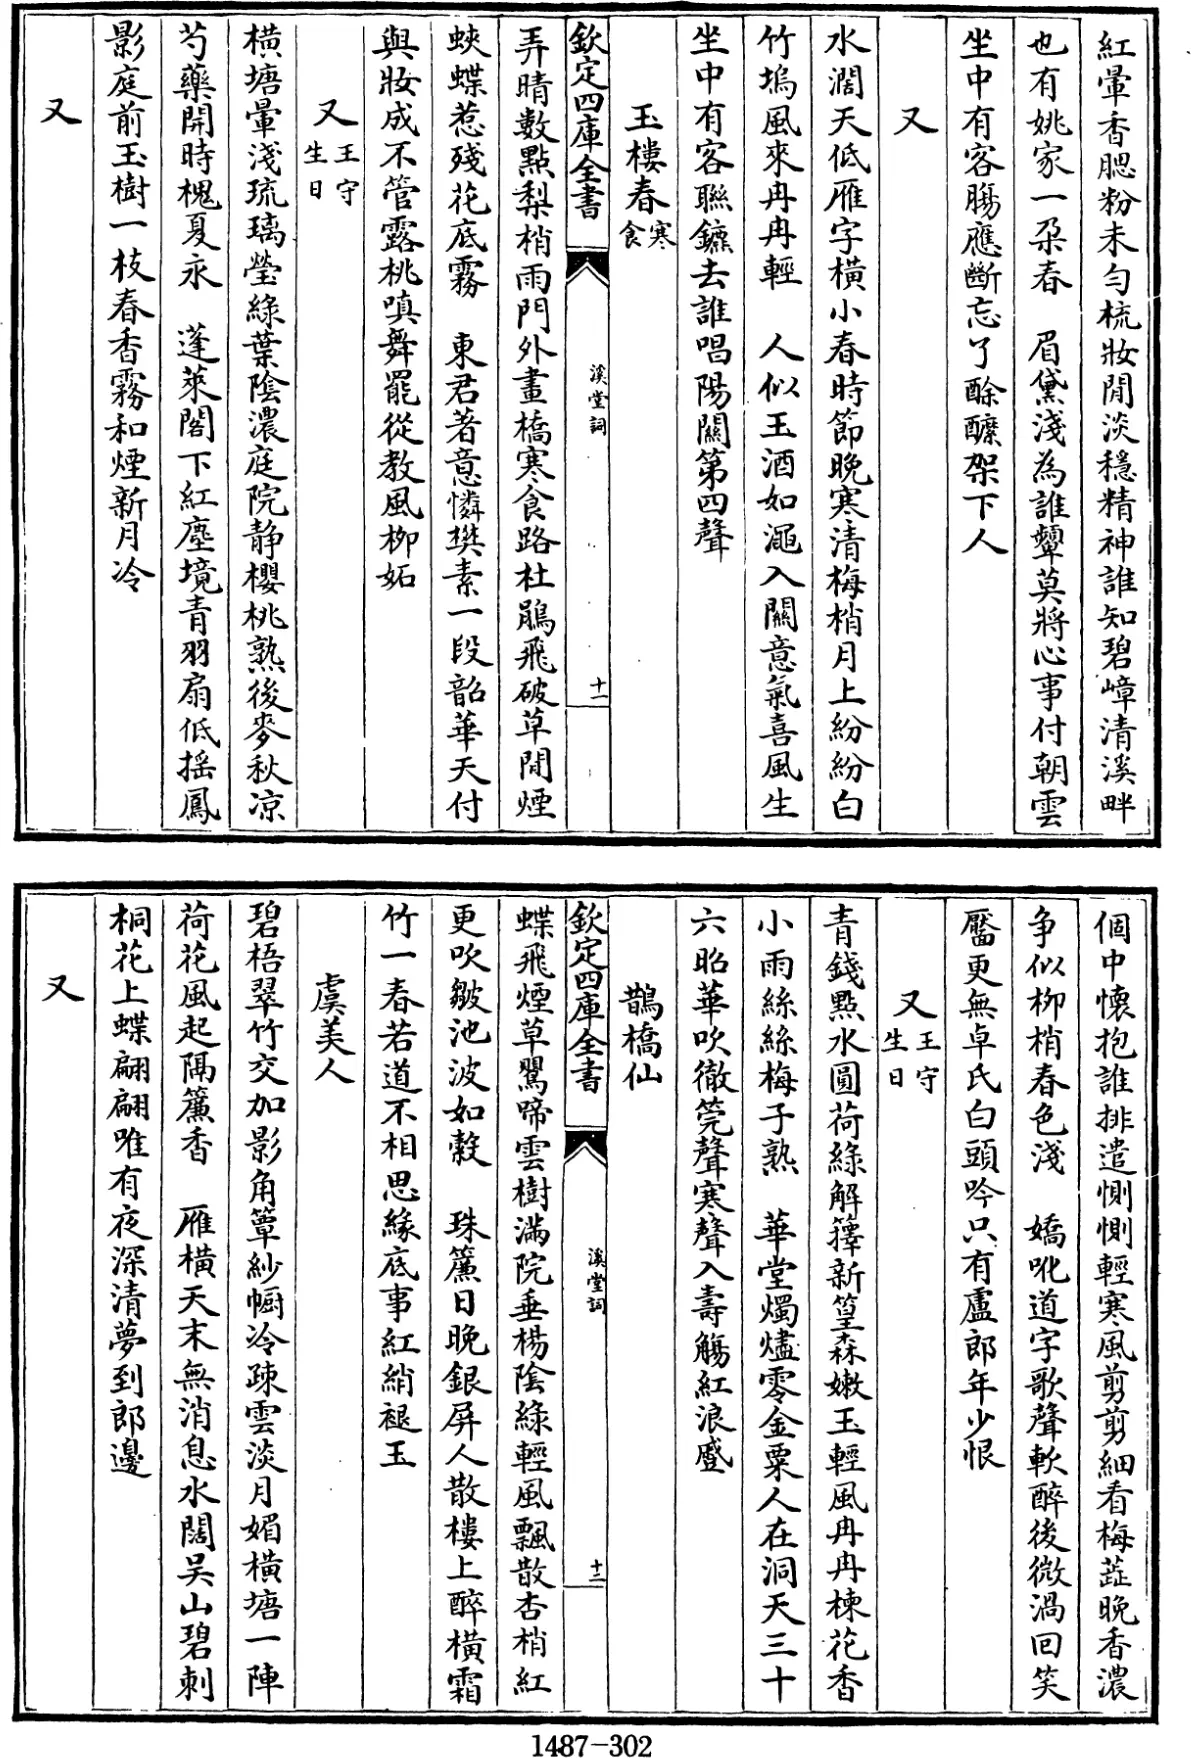 紅暈香腮粉未勻梳妝閒淡穩精神誰知碧嶂清溪畔
也有姚家一朶春　眉黛淺為誰顰莫將心事付朝雲
坐中有客腸應斷忘了酴醿架下人
又
水濶天低雁字橫小春時節晚寒清梅梢月上紛紛白
竹塢風來冉冉輕　人似玉酒如澠入關意氣喜風生
坐中有客聯鑣去誰唱陽關第四聲
玉樓春寒食
欽定四庫全書
溪堂詞
十一
弄晴數點梨梢雨門外畫橋寒食路杜鵑飛破草間煙
蛺蝶惹殘花底霧　東君著意憐樊素一段韶華天付
與妝成不管露桃嗔舞罷從教風柳妬
又王守生日
橫塘暈淺琉璃瑩綠葉陰濃庭院静櫻桃熟後麥秋凉
芍藥開時槐夏永　蓬萊閣下紅塵境青羽扇低搖鳳
影庭前玉樹一枝春香霧和煙新月冷
又
個中懷抱誰排遣惻惻輕寒風剪剪細看梅蕋晚香濃
争似柳梢春色淺　嬌吪道字歌聲軟醉後微渦回笑
靨更無卓氏白頭吟只有盧郎年少恨
又王守生日
青錢點水圓荷綠解籜新篁森嫩玉輕風冉冉楝花香
小雨絲絲梅子熟　華堂燭燼零金粟人在洞天三十
六昭華吹徹筦聲寒聲入壽觴紅浪蹙
鵲橋仙
欽定四庫全書
溪堂詞
十二
蝶飛煙草鶯啼雲樹滿院垂楊陰綠輕風飄散杏梢紅
更吹皺池波如縠　珠簾日晚銀屏人散樓上醉橫霜
竹一春若道不相思緣底事紅綃褪玉
虞美人
碧梧翠竹交加影角簟紗㡡冷疎雲淡月媚橫塘一陣
荷花風起隔簾香　雁橫天末無消息水闊吳山碧刺
桐花上蝶翩翩唯有夜深清夢到郎邊
又
1487-302